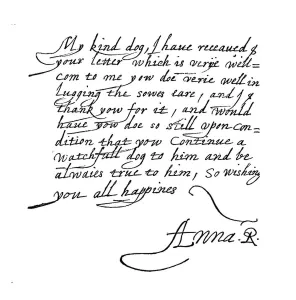 My kind dog, I have receaued &
your letter which is verye well=
com to me yow doe verie well in
lugging the sowes eare, and I &
thank yow for it, and would
haue yow doe so still vpon con=
dition that yow Continue a
watchfull dog to him and be
alwaies true to him, So wishing
you all happines
Anna. R.